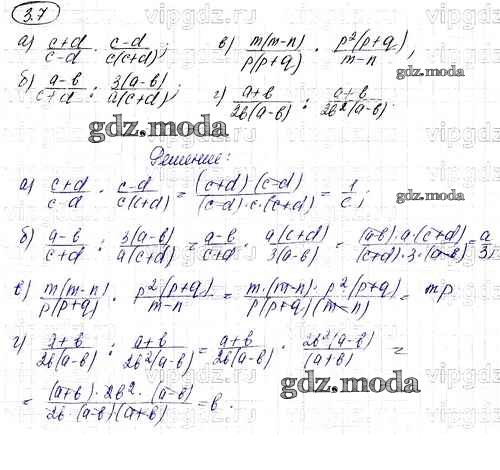 3.7
а) (c+d)/(c-d) · (c-d)/(c(c+d)); в) (m(m-n))/(p(p+q)) · (p²(p+q))/(m-n);
б) (a-b)/(c+d) : (3(a-b))/(a(c+d)); г) (a+b)/(2b(a-b)) : (a+b)/(2b²(a-b)).
gdz.moda
gdz.moda
Решение:
а) (c+d)/(c-d) · (c-d)/(c(c+d)) = ((c+d)(c-d))/((c-d)·c·(c+d)) = 1/c;
gdz.moda
б) (a-b)/(c+d) : (3(a-b))/(a(c+d)) = (a-b)/(c+d) · (a(c+d))/(3(a-b)) = ((a-b)·a·(c+d))/((c+d)·3·(a-b)) = a/3;
в) (m(m-n))/(p(p+q)) · (p²(p+q))/(m-n) = (m·(m-n)·p²(p+q))/(p(p+q)(m-n)) = mp
г) (a+b)/(2b(a-b)) : (a+b)/(2b²(a-b)) = (a+b)/(2b(a-b)) · (2b²(a-b))/(a+b) =
= ((a+b)·2b²·(a-b))/(2b·(a-b)(a+b)) = b.
gdz.moda